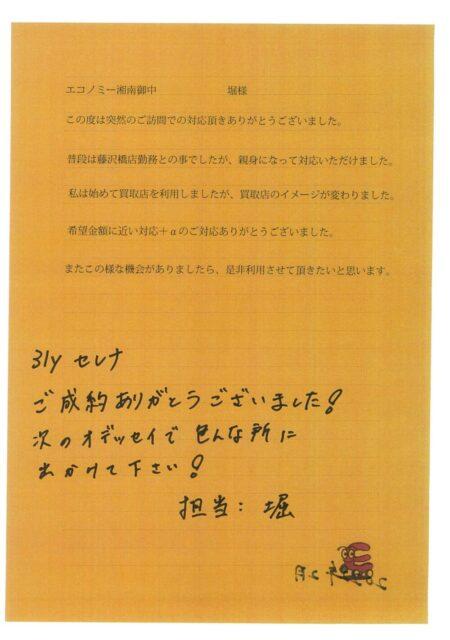 エコノミー湘南御中 堀様
この度は突然のご訪問での対応頂きありがとうございました。
普段は藤沢橋店勤務との事でしたが、親身になって対応いただけました。
私は始めて買取店を利用しましたが、買取店のイメージが変わりました。
希望金額に近い対応+αのご対応ありがとうございました。
またこの様な機会がありましたら、是非利用させて頂きたいと思います。
31y セレナ
ご成約ありがとうございました!
次のオデッセイで色んな所に
出かけて下さい!
担当: 堀